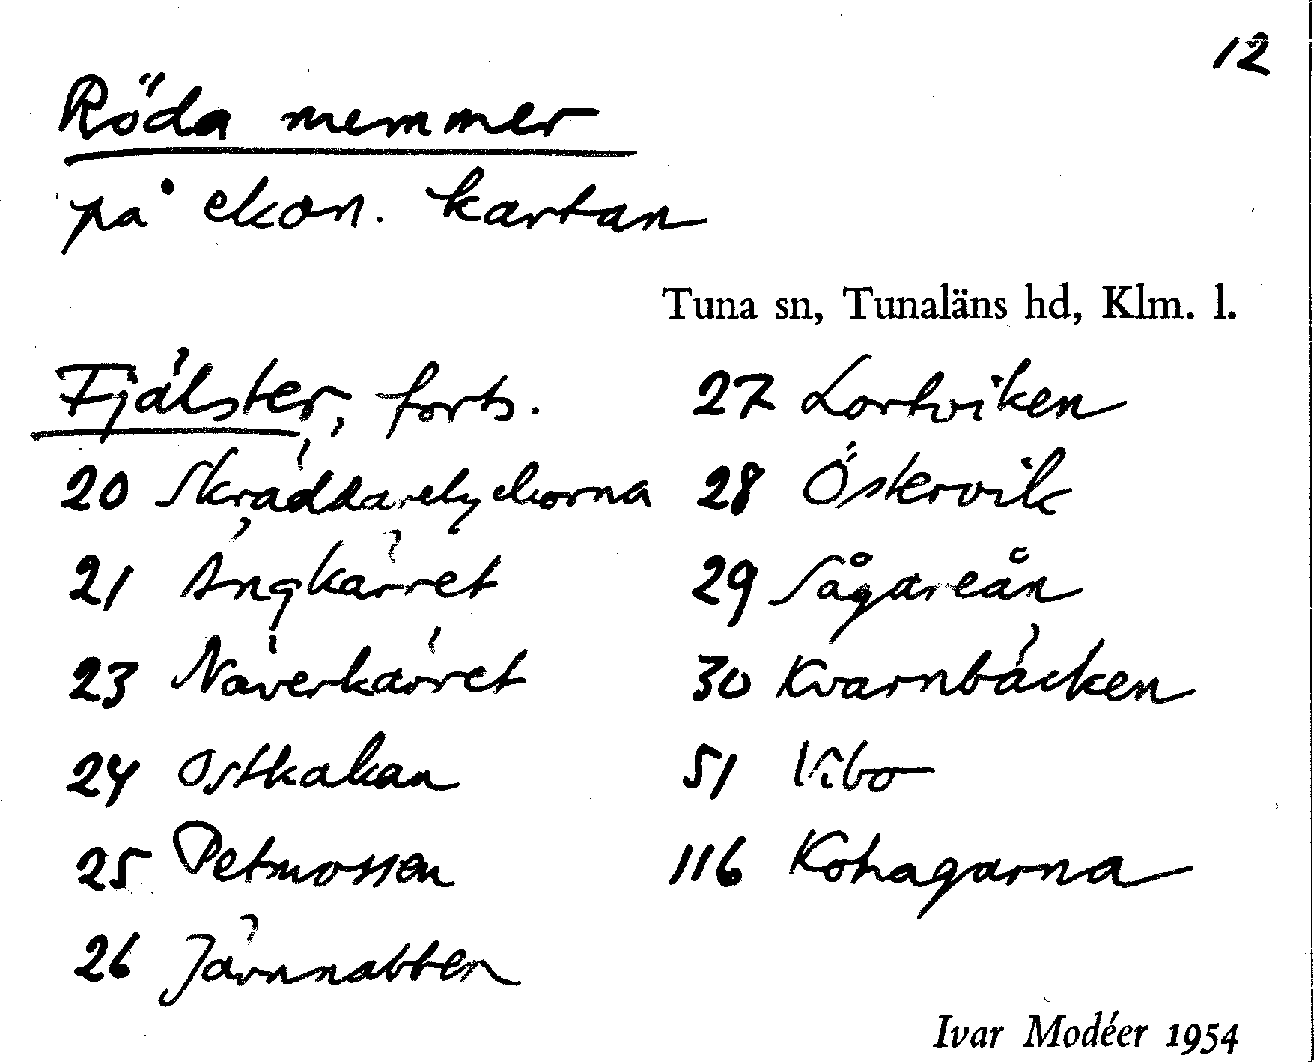 12
Röda nummer
på ekon. kartan
Tuna sn, Tunaläns hd, Klm. l.
Fjälster, forts.
20 Skräddarelyckorna
21 Ängkärret
23 Näverkärret
24 Ostkakan
25 Petmossen
26 Järnnabben
27 Lortviken
28 Öskervik
29 Sågareån
30 Kvarnbäcken
51 Vibo
116 Kohagarna
Ivar Modéer 1954